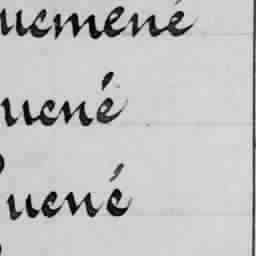 ucmené
ucné
ucné